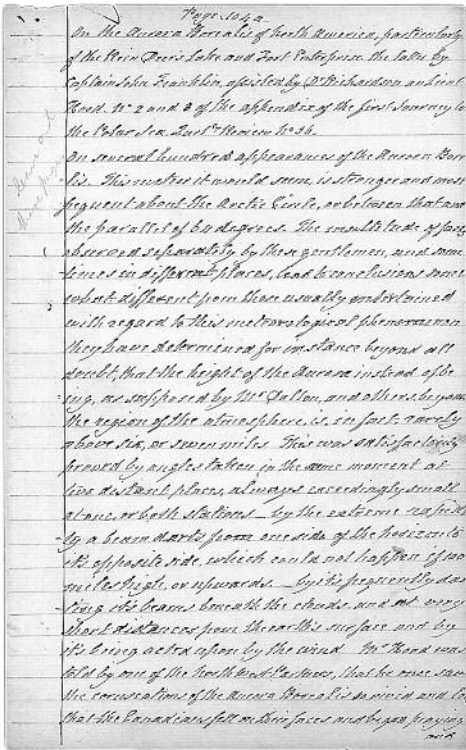 Page 104a.
On the Aurora Borealis of North America, particularly
of the Rein Deer Lake and Fort Enterprise the latter by
Captain John Franklin, assisted by Dr Richardson and Lieut
Hood. No 2 and 3 of the appendix of the first Journey to
the Polar Sea. Quart Review No 36.
On several hundred appearances of the Aurora Bore
lis. This meteor it would seem, is stronger and most
frequent about the Arctic Circle, or between that and
the parallel of 64 degrees. The multitude of facts
observed separately by these gentlemen, and some
times in different places, lead to conclusions some
what different from those usually entertained
with regard to this meteorological phenomenon
they have determined for instance beyond all
doubt, that the height of the Aurora instead of be
ing, as supposed by Mr Dalton, and others, beyond
the region of the atmosphere, is, in fact, rarely
above six, or seven miles. This was satisfactorily
proved by angles taken in the same moment at
two distant places, always exceedingly small
at one, or both stations _ by the extreme rapidi
ty a beam darts from one side of the horizon to
it's opposite side, which could not happen if 100
miles high, or upwards. _ by it's frequently dar
ting it's beams beneath the clouds, and at very
short distances from the earth's surface and by
it's being acted upon by the wind Mr Hood was
told by one of the North west Partners, that he once saw
the coruscations of the Aurora Borealis so vivid and low
that the Canadians fell on their faces and began praying